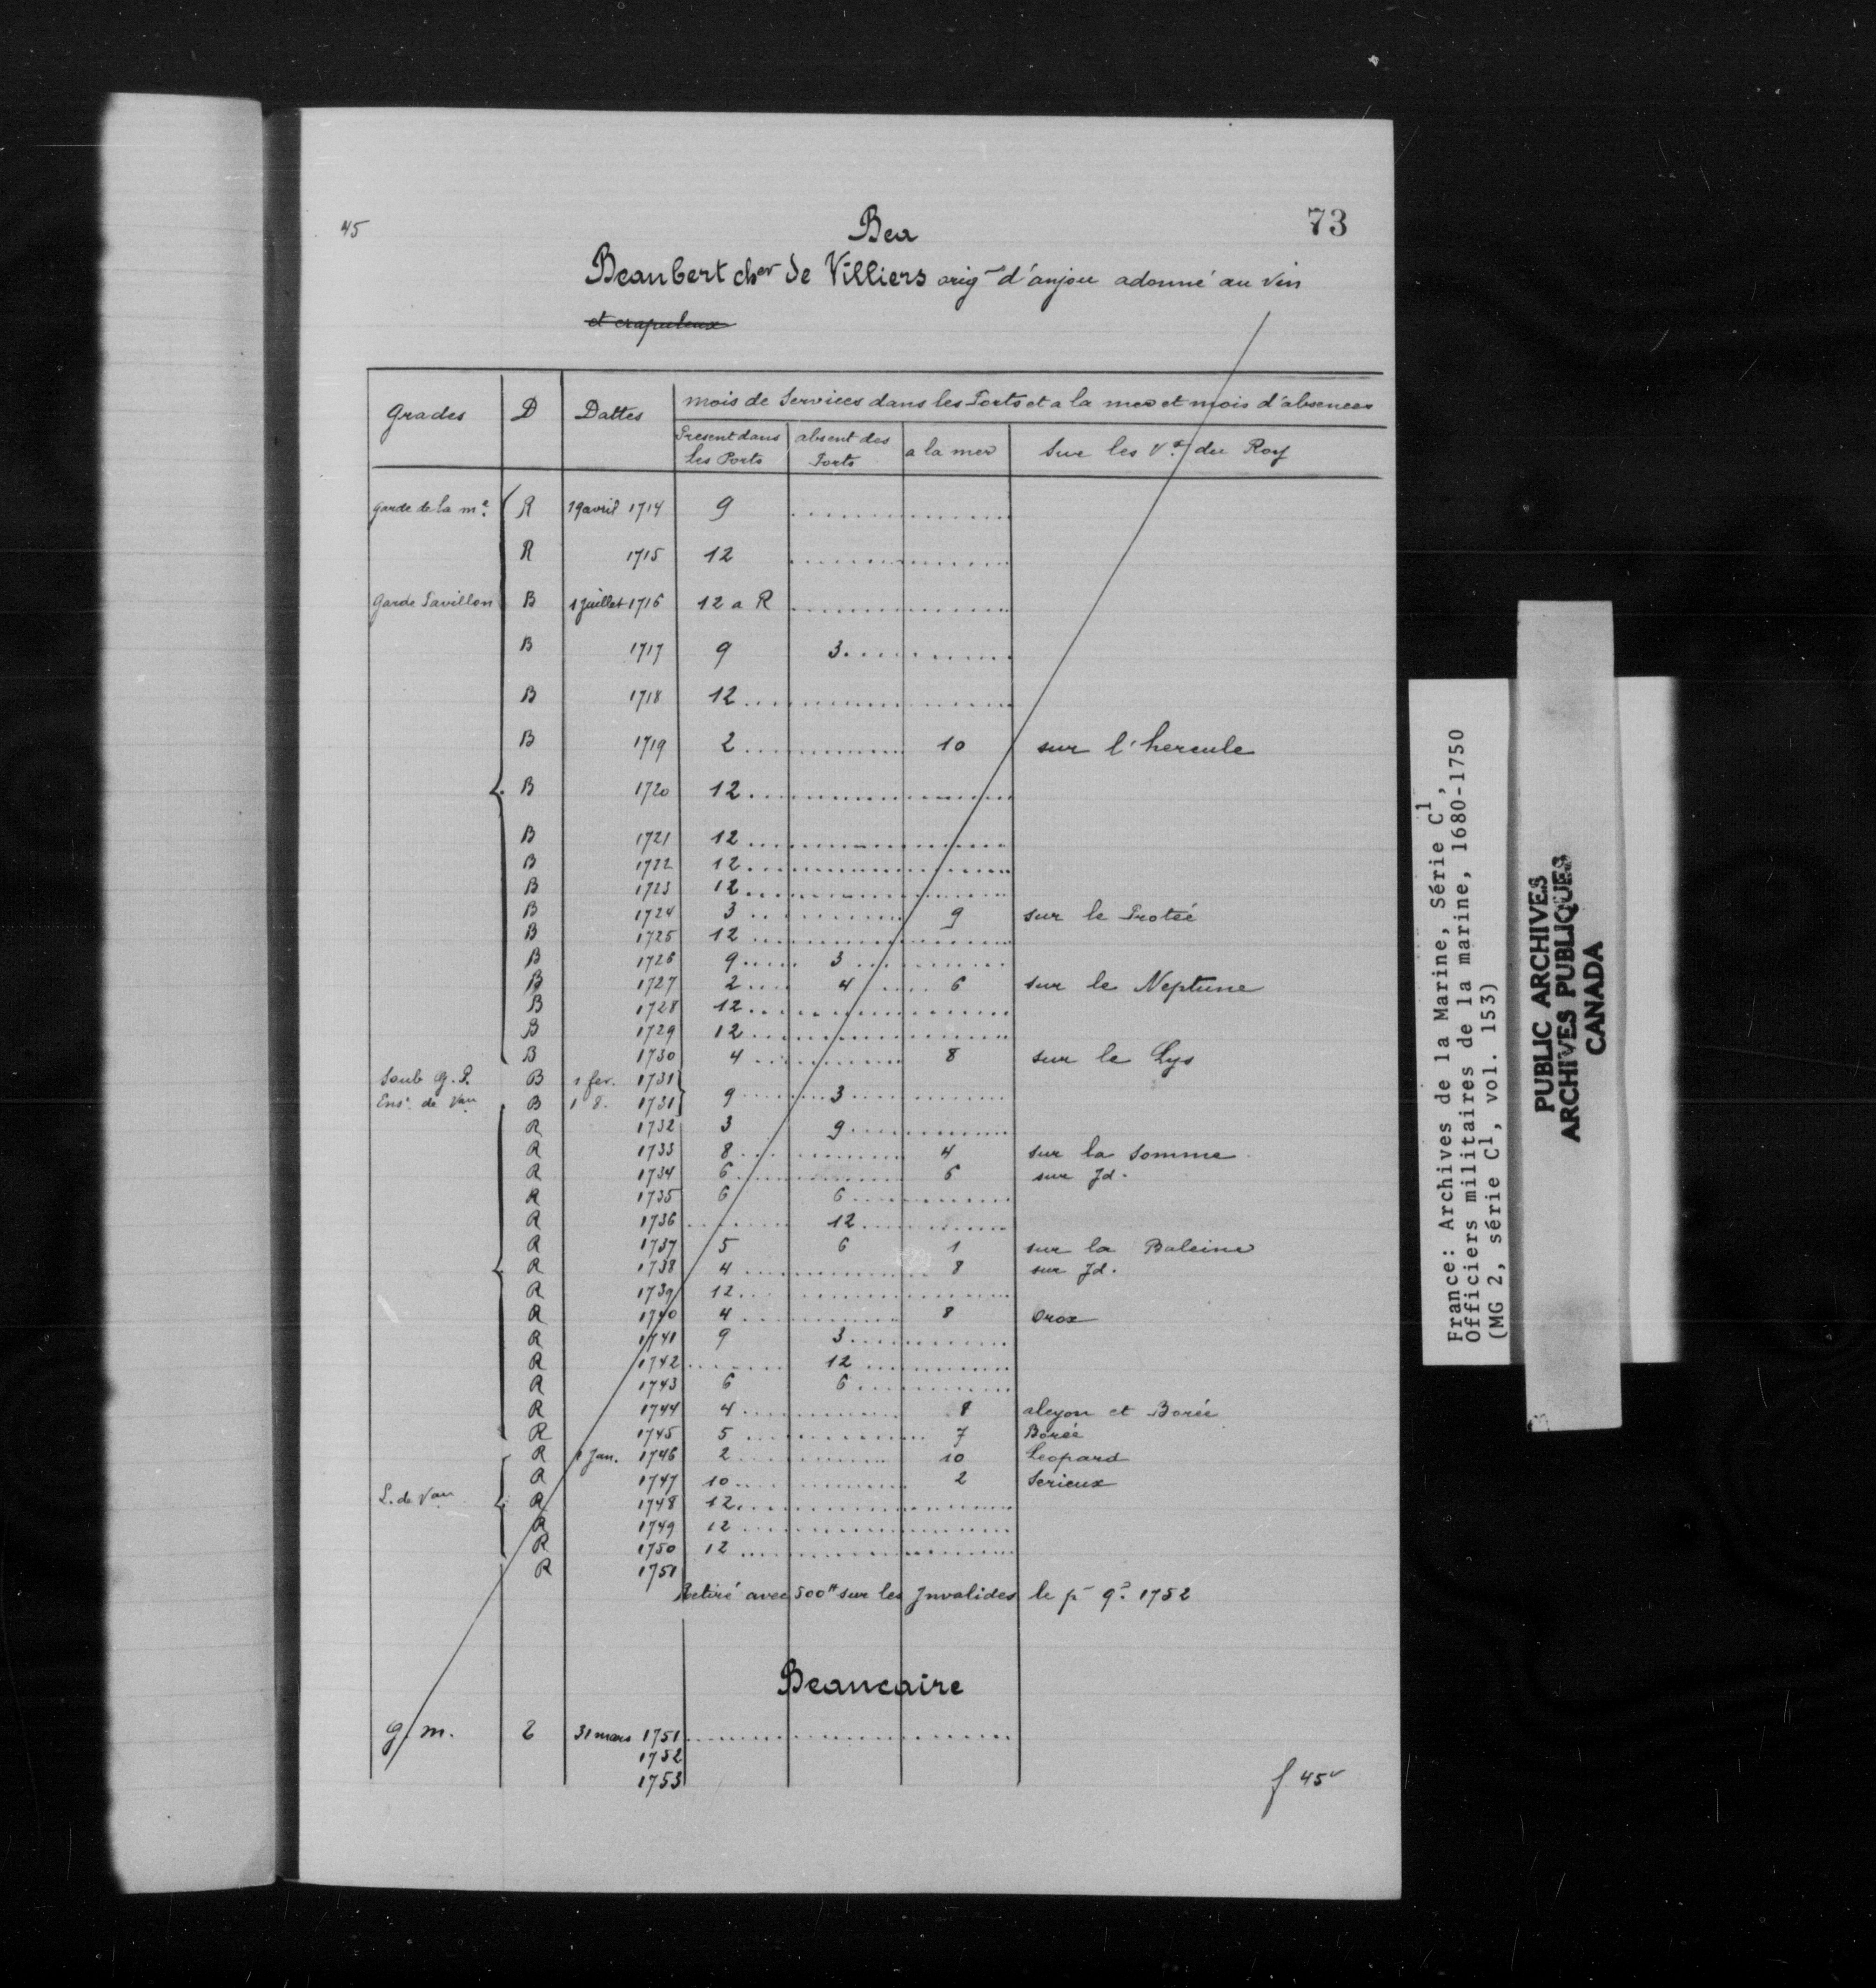 45
Bea
73
Beaubert cher de Villiers orig d'anjou adonné au vin
et crapuleux
Grades D Dattes mois de Services dans les Ports et a la mer et mois d'absences
Present dans les Ports absent des Ports a la mer Sur les Vx. du Roy
garde de la me. R 19 avril 1714 9
R 1715 12
Garde Pavillon B 1 juillet 1716 12 a R
B 1717 9 3
B 1718 12
B 1719 2 10 sur l'hercule
B 1720 12
B 1721 12
B 1722 12
B 1723 12
B 1724 3 9 sur le Protée
B 1725 12
B 1726 9 3
B 1727 2 4 6 sur le Neptune
B 1728 12
B 1729 12
B 1730 4 8 sur le Lys
Soub G. P. B 1 fev. 1731
Ens. de Vau B 1 8. 1731 9 3
R 1732 3 9
R 1733 8 4 sur la Somme
R 1734 6 6 sur Id.
R 1735 6 6
R 1736 12
R 1737 5 6 1 sur la Baleine
R 1738 4 8 sur Id.
R 1739 12
R 1740 4 8 Orox
R 1741 9 3
R 1742 12
R 1743 6 6
R 1744 4 8 alcyon et Borée
R 1745 5 7 Borée
R 1 Jan. 1746 2 10 Leopard
R 1747 10 2 Serieux
L. de Vau R 1748 12
R 1749 12
R 1750 12
R 1751
Retiré avec 500# sur les Invalides le pr 9.e 1752
Beaucaire
g. m. 31 mars 1751
1752
1753
f 45v
France: Archives de la Marine, Série C1,
Officiers militaires de la marine, 1680-1750
(MG 2, série C1, vol. 153)
PUBLIC ARCHIVES
ARCHIVES PUBLIQUES
CANADA